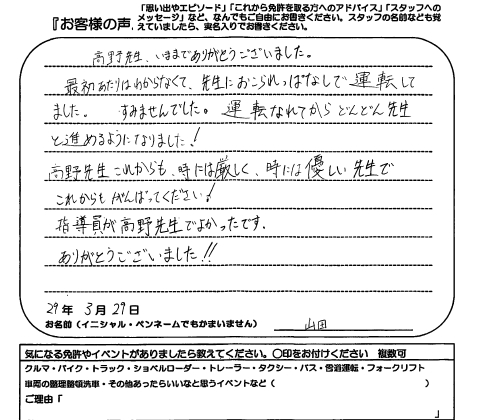 『お客様の声
「思い出やエピソード」「これから免許を取る方へのアドバイス」「スタッフへの
メッセージ」など、なんでもご自由にお書きください。スタッフの名前なども覚
えていましたら、実名入りでお書きください。
高野先生、いままでありがとうございました。
最初あたりはわからなくて、先生におこられっぱなしで運転して
ました。 すみませんでした。運転なれてからどんどん先生
と進めるようになりました!
高野先生これからも、時には厳しく、時には優しい先生で
これからもがんばってください!
指導員が高野先生でよかったです.
ありがとうございました!!
29年 3月29日
お名前(イニシャル・ペンネームでもかまいません) 山田
気になる免許やイベントがありましたら教えてください。〇印をお付けください 複数可
クルマ・バイク・トラック・ショベルローダー・トレーラー・タクシー・バス・雪道運転・フォークリフト
車両の整理整頓洗車・その他あったらいいなと思うイベントなど( )
ご理由「 」